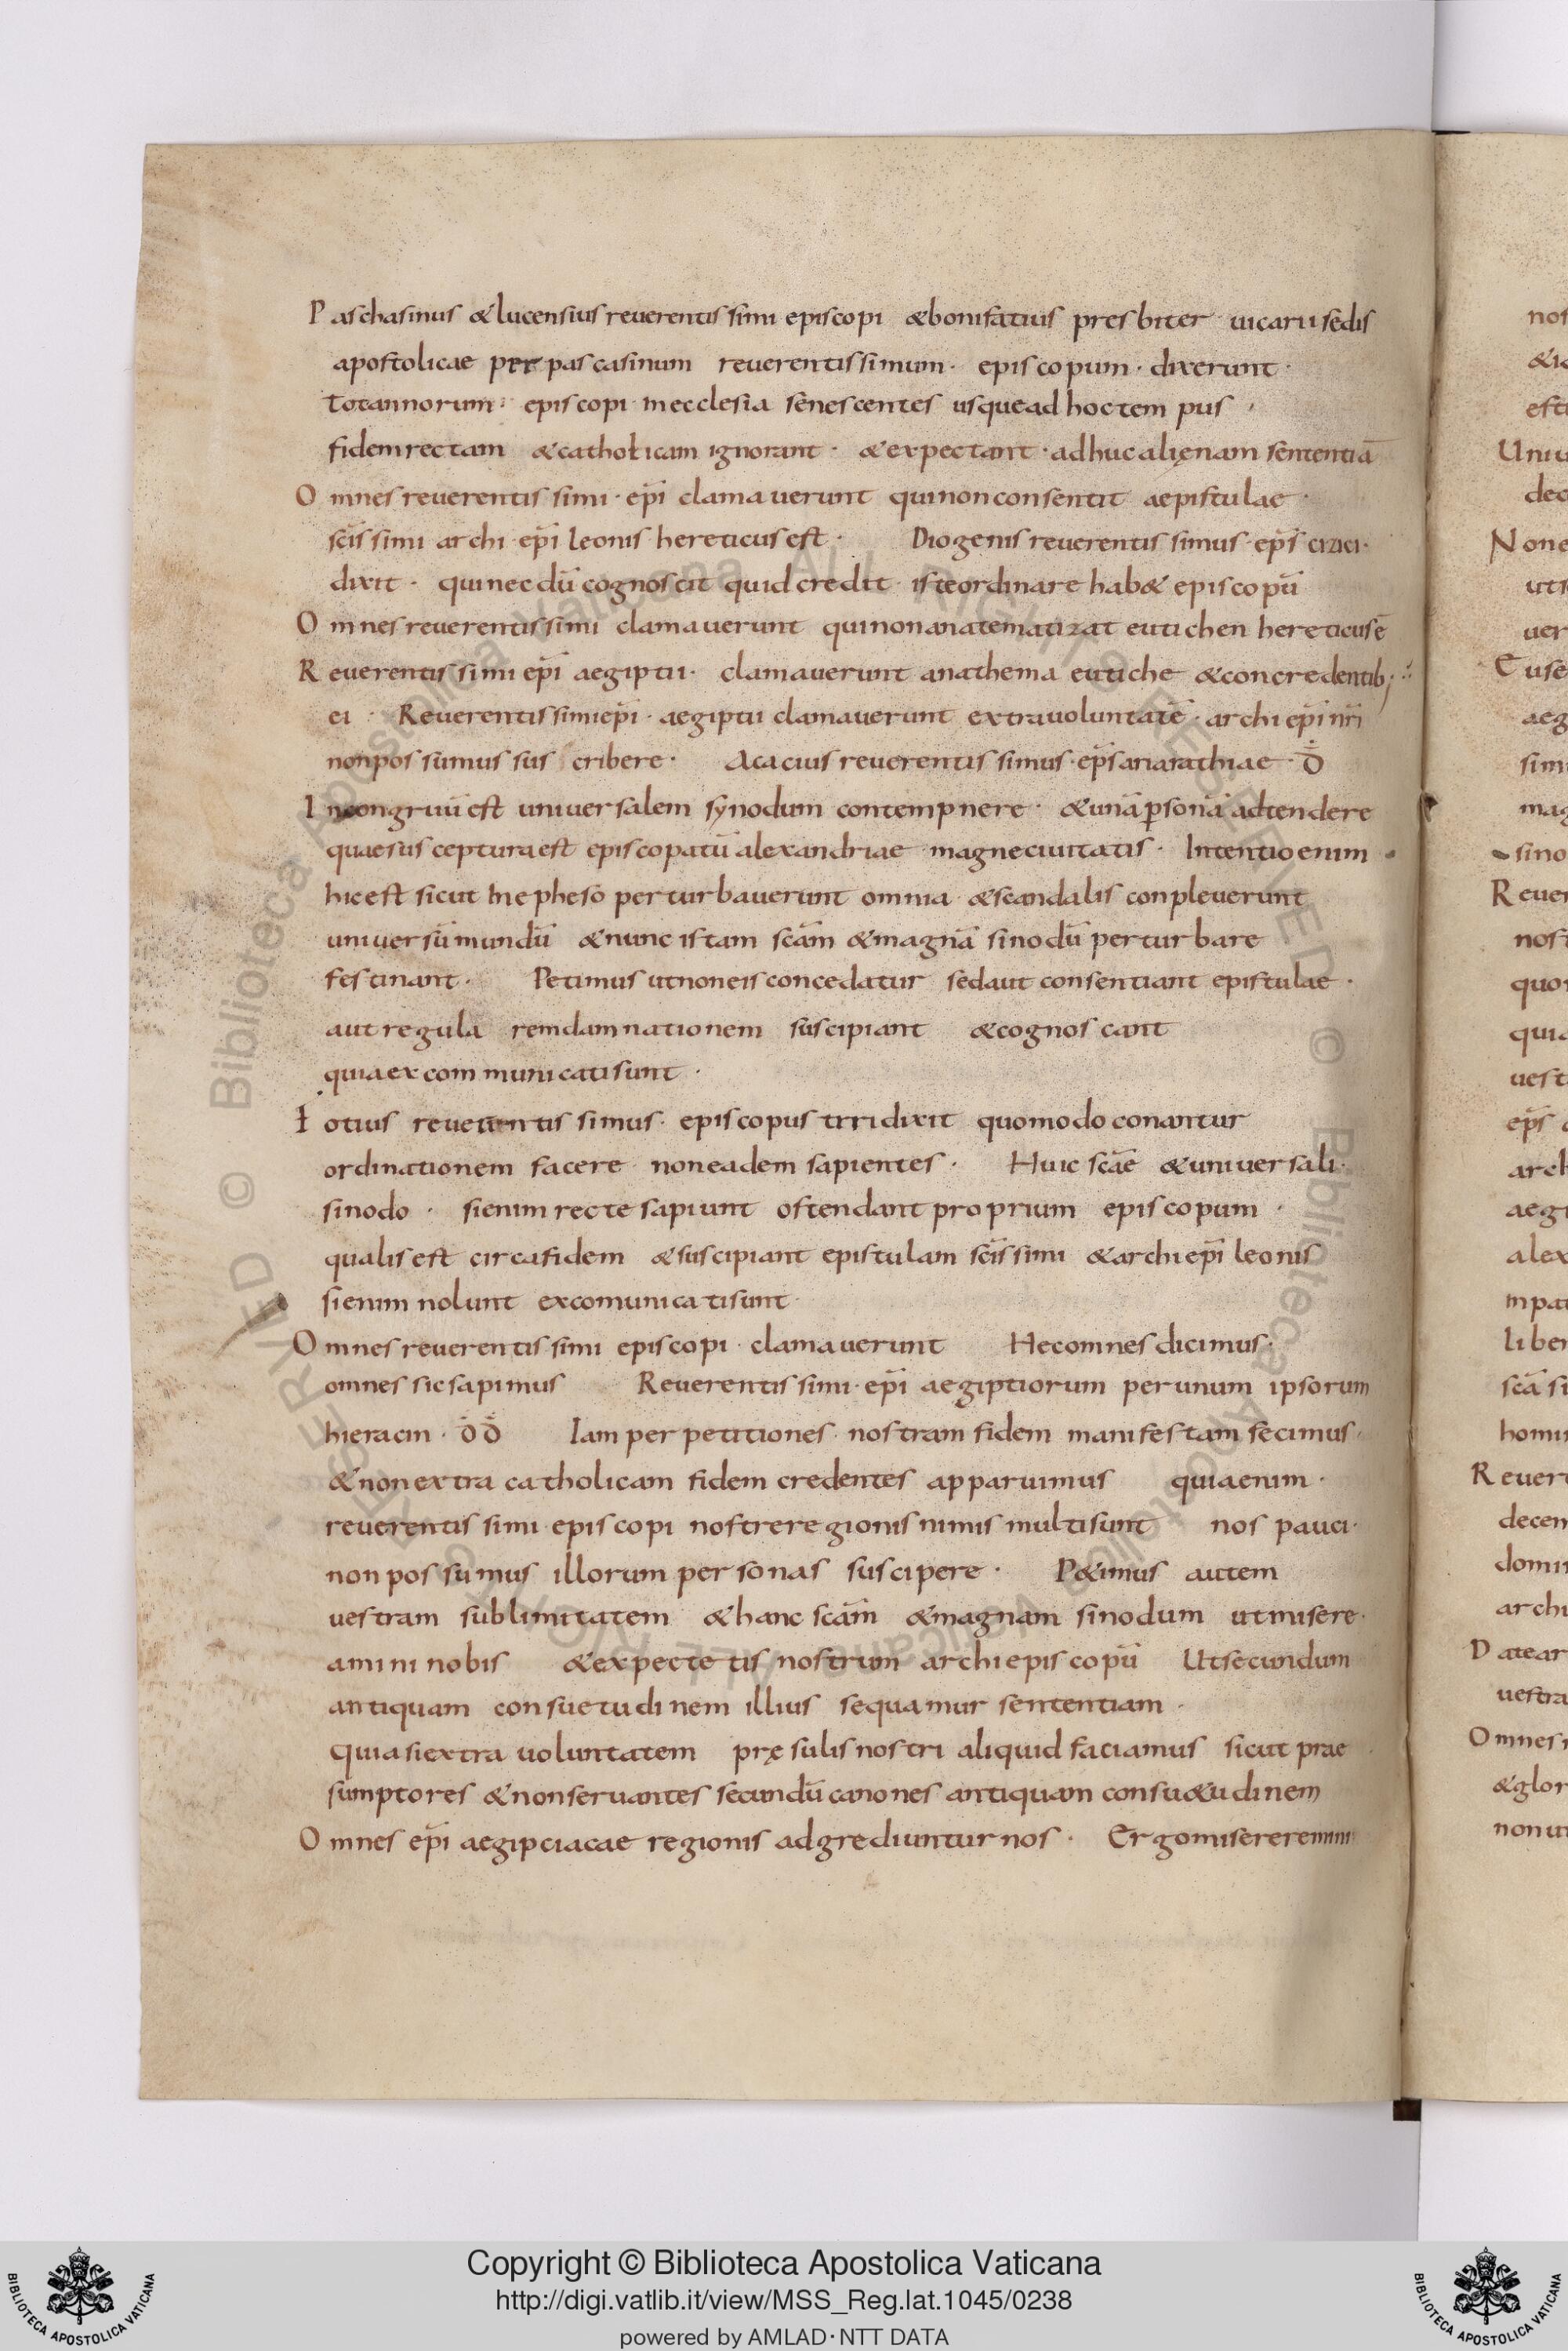 Paschasinus & lucensius reuerentissimi episcopi & bonifatius presbiter uicarii sedis
apostolicae per pascasinum reuerentissimum · episcopum · dixerunt ·
Totannorum · episcopi in ecclesia senescentes usque ad hoc tempus ·
fidem rectam & catholicam ignorant · & expectant · adhuc alięnam sententiā
Omnes reuerentissimi · epī clamauerunt qui non consentit aepistulae ·
scīssimi archi epī leonis hereticus est · Diogenis reuerentissimus · ep̄s cizici ·
dixit · qui necdū cognoscit quid credit · iste ordinare hab& episcopū
Omnes reuerentissimi clamauerunt qui non anatematizat eutichen hereticus ē
Reuerentissimi epī aegiptii · clamauerunt anathema eutiche & concredentib;
ei · Reuerentissimi epī · aegiptii clamauerunt extra uoluntatē · archi epī nrī
non possumus suscribere · Acacius reuerentissimus · ep̄s ariarathiae · D̄
Incongruū est uniuersalem synodum contempnere · & unā p̱sonā adtendere
quae susceptura est episcopatū alexandriae magne ciuitatis · Intentio enim
hic est sicut in epheso perturbauerunt omnia & scandalis conpleuerunt
uniuersū mundū & nunc istam scām & magnā sinodū perturbare
festinant · Petimus ut non eis concedatur sed aut consentiant epistulae ·
aut regula rem damnationem suscipiant & cognoscant
quia excommunicati sunt ·
Fotius reuerentissimus · episcopus tiri dixit quomodo conantur
ordinationem facere non eadem sapientes · Huic scāe & uniuersali ·
sinodo · si enim recte sapiunt ostendant proprium episcopum ·
qualis est circa fidem & suscipiant epistulam scīssimi & archi epī leonis
si enim nolunt excomunicati sunt ·
Omnes reuerentissimi episcopi · clamauerunt Hec omnes dicimus ·
omnes sic sapimus Reuerentissimi · epī aegiptiorum per unum ipsorum
hieracin · D̄D̄ Iam per petitiones nostram fidem manifestam fecimus ·
& non extra catholicam fidem credentes apparuimus quia enim ·
reuerentissimi · episcopi nostre regionis nimis multi sunt nos pauci ·
non possumus illorum personas suscipere · P&imus autem
uestram sublimitatem & hanc scām & magnam sinodum ut misere
amini nobis & expectetis nostrum archiepiscopū Ut secundum
antiquam consuetudinem illius sequamur sententiam ·
Quia si extra uoluntatem pręsulis nostri aliquid faciamus sicut prae
sumptores & non seruantes secundū canones antiquam consu&udinem
Omnes epī aegipciacae regionis adgrediuntur nos · Ergo misereremini
nos
& ic
est
Uniu
dec
None
uts
uer
Euse
aeg
sim
mag
sino
Reuer
nost
quor
quia
uest
ep̄s
arch
aegi
alex
inpat
liber
scā si
homin
Reuer
decem
domin
archi
Datear
uestra
Omnes
& glor
non ut
Copyright © Biblioteca Apostolica Vaticana
http://digi.vatlib.it/view/MSS_Reg.lat.1045/0238
powered by AMLAD·NTT DATA
BIBLIOTECA APOSTOLICA VATICANA
BIBLIOTECA APOSTOLICA VATICANA
© Biblioteca Apostolica Vaticana ALL RIGHTS RESERVED © Biblioteca Apostolica Vaticana ALL RIGHTS RESERVED